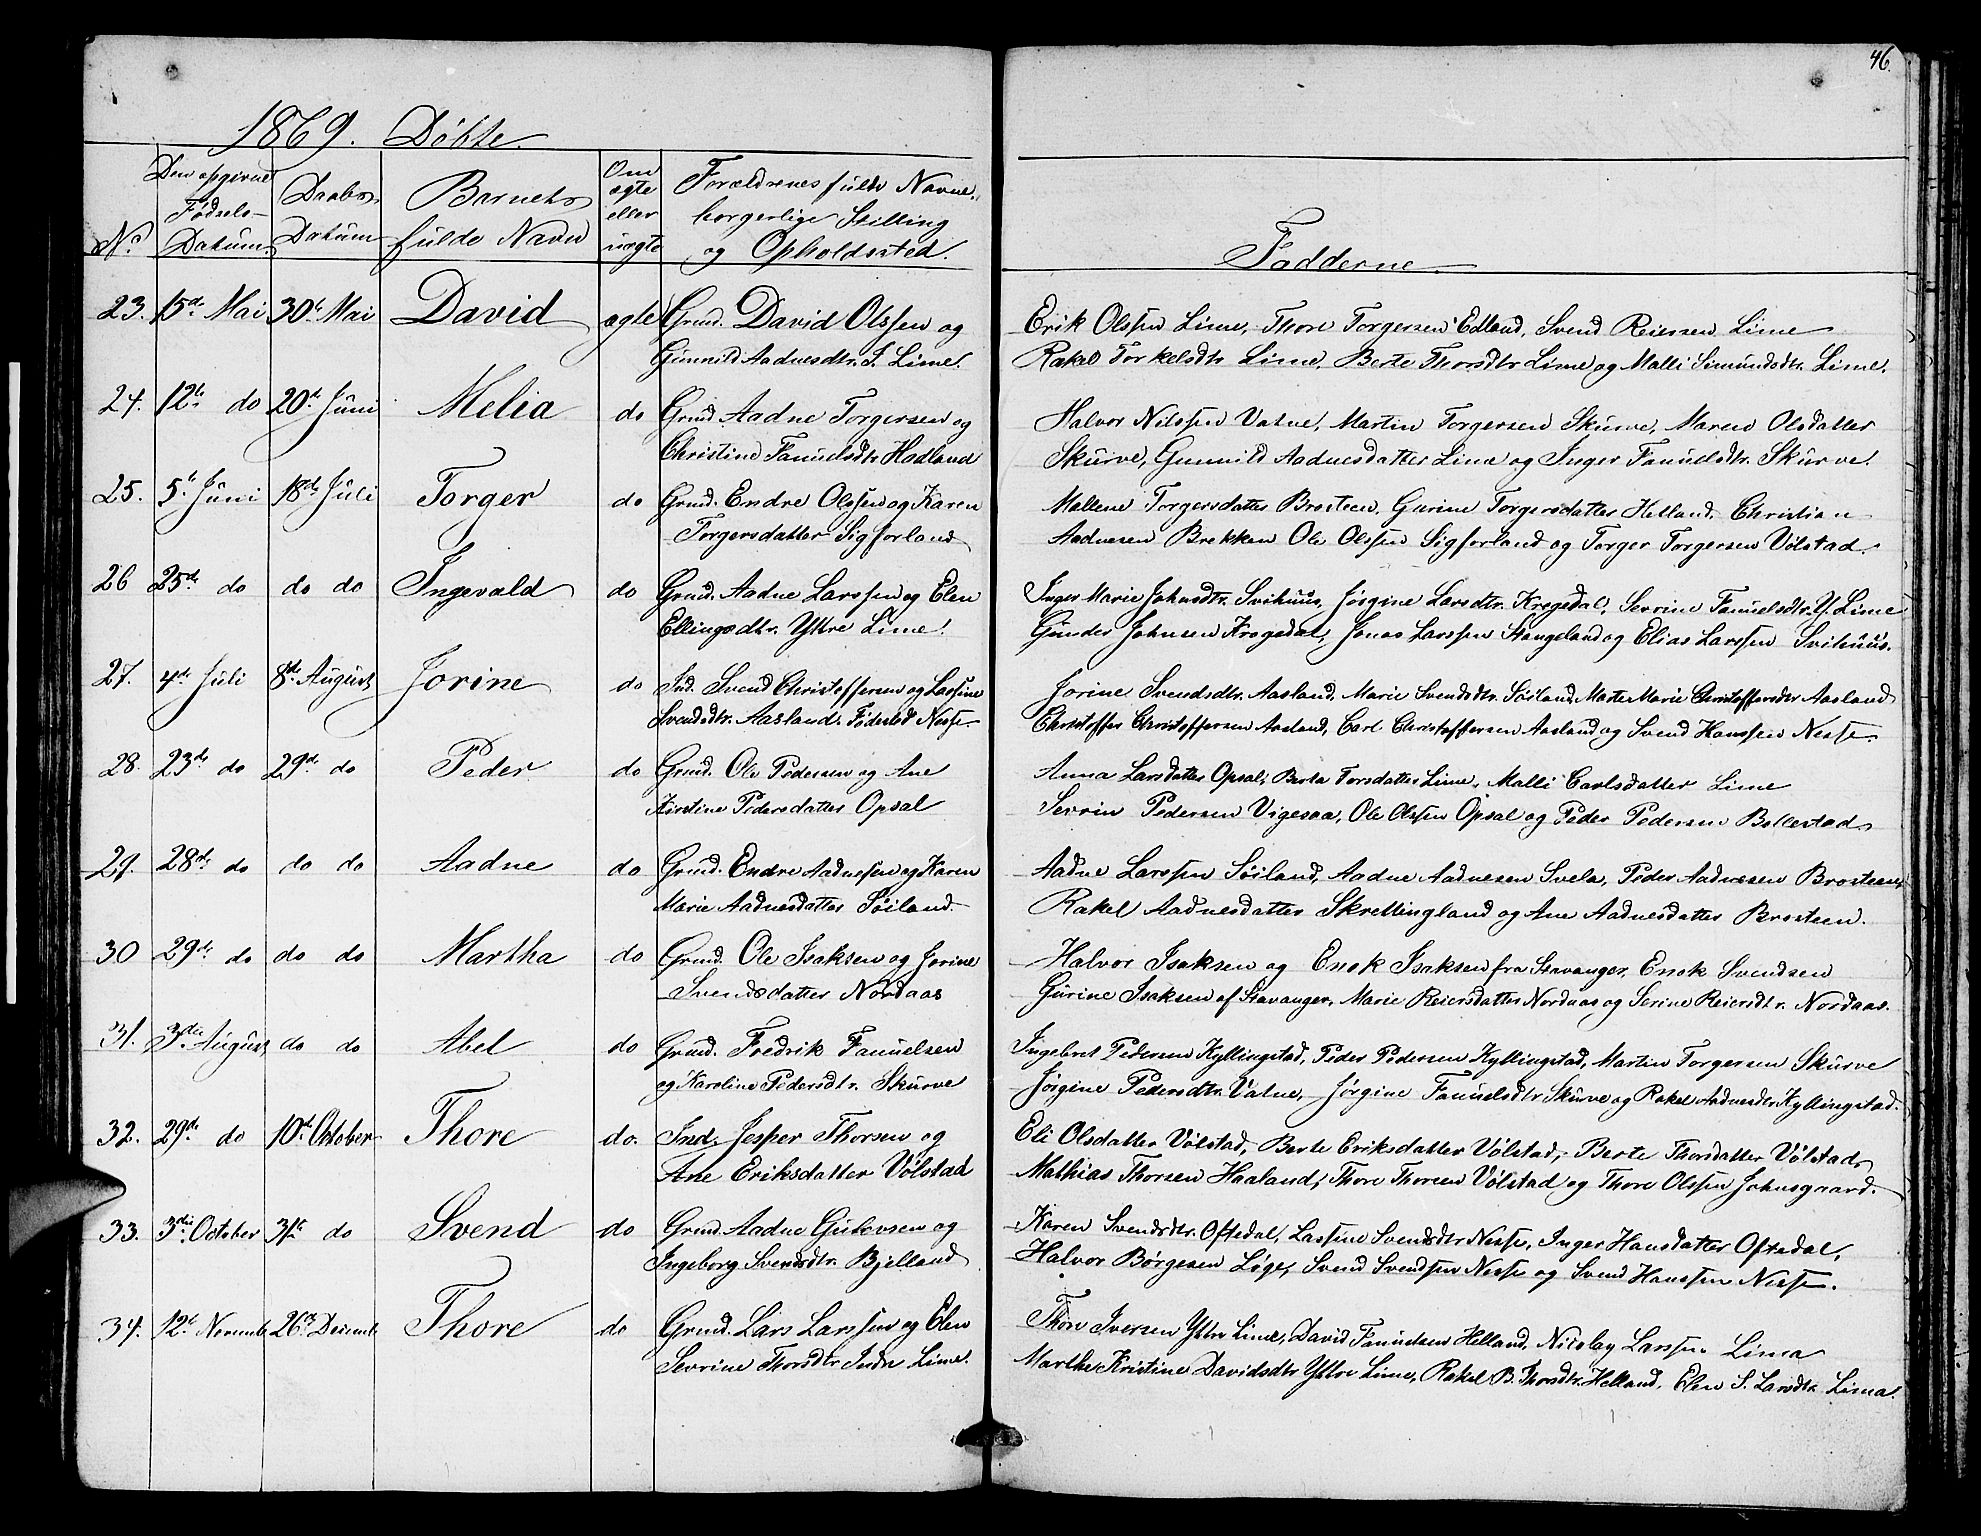 46.
1869. Døbte.
No
Den opgivne Fødsels-Datum.
Daabs Datum
Barnets fulde Navn
Om ægte eller uægte
Forældrenes fulde Navne, borgerlige Stilling og Opholdssted.
Fadderne
23. 15de Mai 30te Mai David ægte Grmd. David Olssen og Erik Olssen Lime, Thore Torgersen Edland, Svend Reiersen Lime
Gunnild Aadnesdtr. S. Lime. Rakel Torkelsdtr Lime, Berte Thorsdtr Lime og Malli Simundsdtr. Lime.
24. 12te do 20de Juni Melia do Grmd. Aadne Torgersen og Halvor Nilssen Vatne, Martin Torgersen Skurve, Maren Olsdatter
Christine Fanuelsdtr Hadland Skurve, Gunnild Aadnesdatter Lima og Inger Fanuelsdtr. Skurve.
25. 5te Juni 18de Juli Torger do Grmd. Endre Olssen og Karen Mallene Torgersdatter Brosteen, Gurine Torgersdatter Hetland, Christian
Torgersdatter Sigforland Aadnesen Brekken Ole Olssen Sigforland og Torger Torgersen Vølstad.
26 25de do do do Ingevald do Grmd. Aadne Larssen og Elen Inger Marie Johnsdtr. Svihuus, Jørgine Larsdtr. Krogedal, Sevrine Fanuelsdtr. Y. Lime
Ellingsdtr. Yttre Lime. Gunder Johnsen Krogedal, Jonas Larssen Stangeland og Elias Larssen Svihuus.
27. 4de Juli 8de August Jorine do Ind. Svend Christoffersen og Lassine Jorine Svendsdtr. Aasland, Marie Svendsdtr. Søiland, Marte Marie Christoffersdtr Aasland
Svendsdtr. Aasland. Fødested Nesse. Christoffer Christoffersen Aasland, Carl Christoffersen Aasland og Svend Hanssen Nesse.
28. 23de do 29de do Peder do Grmd. Ole Pedersen og Ane Anna Larsdatter Opsal, Berta Torsdatter Lime, Malli Carlsdatter Lime
Kirstine Pedersdatter Opsal Sevrin Pedersen Vigesaa, Ole Olssen Opsal og Peder Pedersen Bollestad
29. 28de do do do Aadne do Grmd. Endre Aadnesen og Karen Aadne Larssen Søiland, Aadne Aadnesen Svela, Peder Aadnesen Brosteen,
Marie Aadnesdatter Søiland. Rakel Aadnesdatter Skrettingland og Ane Aadnesdatter Brosteen.
30 29de do do do Martha do Grmd. Ole Isaksen og Jorine Halvor Isaksen og Enok Isaksen fra Stavanger, Enok Svendsen
Svendsdatter Nordaas Gurine Isaksen af Stavanger, Marie Reiersdatter Nordaas og Serine Reiersdtr. Nordaas.
31. 3die August do do Abel do Grmd. Fredrik Fanuelsen Ingebret Pedersen Kyllingstad, Peder Pedersen Kyllingstad, Martin Torgersen Skurve
og Karoline Pedersdtr. Skurve Jørgine Pedersdtr. Vatne, Jørgine Fanuelsdtr Skurve og Rakel Aadnesdtr Kyllingstad.
32. 29de do 10de Oktober Thore do. Ind. Jesper Thorsen og Eli Olsdatter Vølstad, Berte Eriksdatter Vølstad, Berte Thorsdatter Vølstad,
Ane Eriksdatter Vølstad Mathias Thorsen Haaland, Thore Thorsen Vølstad og Thore Olssen Johnsgaard.
33. 3die October 31te do Svend do Grmd. Aadne Gutovsen og Karen Svendsdtr. Oftedal, Lassine Svendsdtr Nesse, Inger Hansdatter Oftedal,
Ingeborg Svendsdtr. Bjelland Halvor Børgesen Løge, Svend Svendsen Nesse og Svend Hanssen Nesse.
34. 12te Novemb 26de Decemb Thore do Grmd. Lars Larssen og Elen Thore Iversen Yttre Lime, David Fanuelsen Helland, Nicolay Larssen Lima
Sevrine Thorsdtr. Indre Lime. Marthe Kristine Davidsdtr Yttre Lime, Rakel B. Thorsdtr. Helland, Elen S. Larsdtr. Lima.